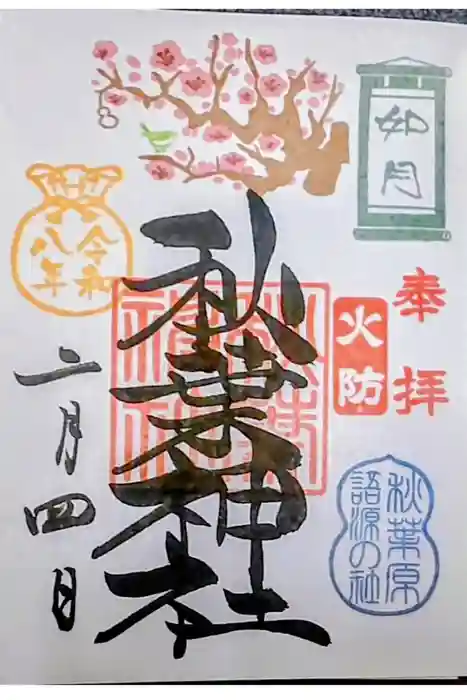 如月
奉拝
火防
秋葉原
語源の社
秋葉神社
秋葉
神社
令和
八年
二月四日